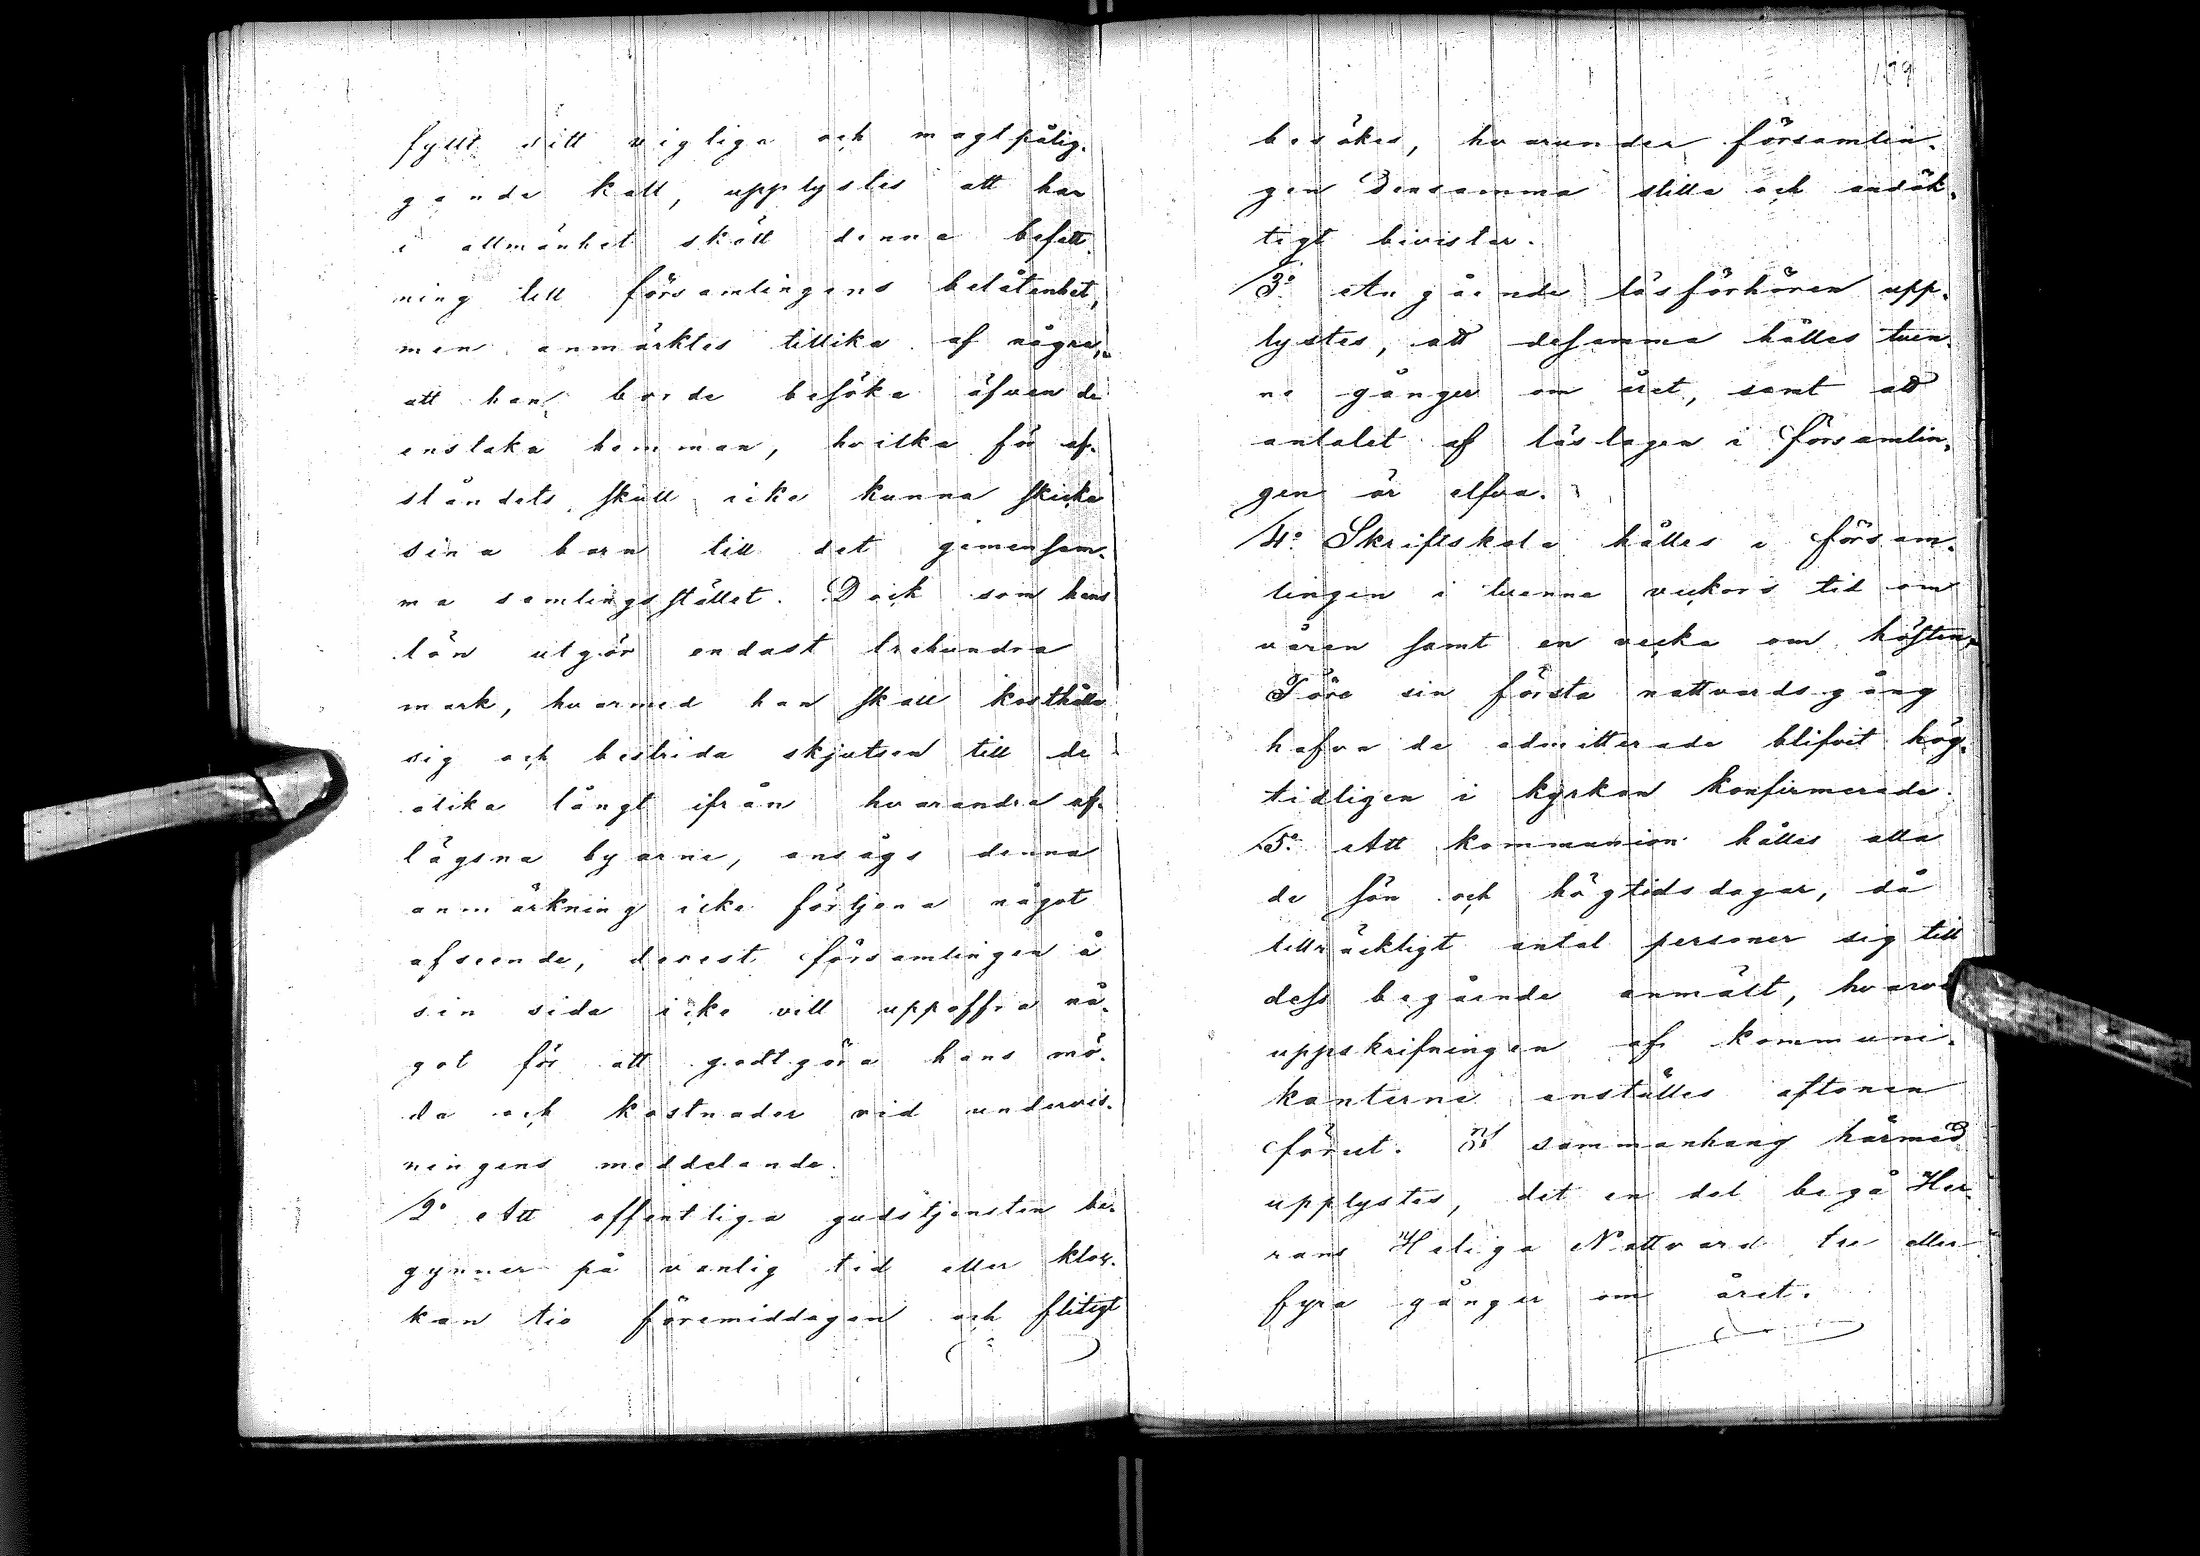 fyllt sitt vigtiga och magtpålig-
gande kall, upplystes att han
i allmänhet skött denna befatt-
ning till församlingens belåtenhet,
men anmärktes tillika af några,
att han borde besöka äfven de
enstaka hemman, hvilka för af-
ståndets skull icke kunna skicka
sina barn till det gemensam-
ma samlingsstället. Dock som hans
lön utgör endast trehundra
mark, hvarmed han skall kosthålla
sig och bestrida skjutsen till de
olika långt ifrån hvarandra af-
lägsna byarne, ansågs denna
anmärkning icke förtjena något
afseende, derest församlingen å
sin sida icke vill uppoffra nå-
got för att godtgöra hans mö-
da och kostnader vid undervis-
ningens meddelande.
2:o Att offentliga gudstjensten be-
gynner på vanlig tid eller kloc-
kan tio förmiddagen och flitigt
159
besökes, hvarunder församlin-
gen densamma stilla och andäk-
tigt bivistar.
3:o Angående läsförhören upp-
lystes, att desamma hålles tven-
ne gånger om året, samt att
antalet af läslagen i församlin-
gen är elfva.
4:o Skriftskola hålles i försam-
lingen i tvenne veckors tid om
våren samt en vecka om hösten.
Före sin första nattvardsgång
hafva de admitterade blifvit hög-
tidligen i kyrkan konfirmerade.
5:o Att kommunion hålles alla
de sön och högtidsdagar, då
tillräckligt antal personer sig till
dess begående anmält, hvarvi
uppskrifningen af kommuni-
kanterne anställes aftonen
förut. I sammanhang härmed
upplystes, det en del begå Her-
rans Heliga Nattvard tre eller
fyra gånger om året.